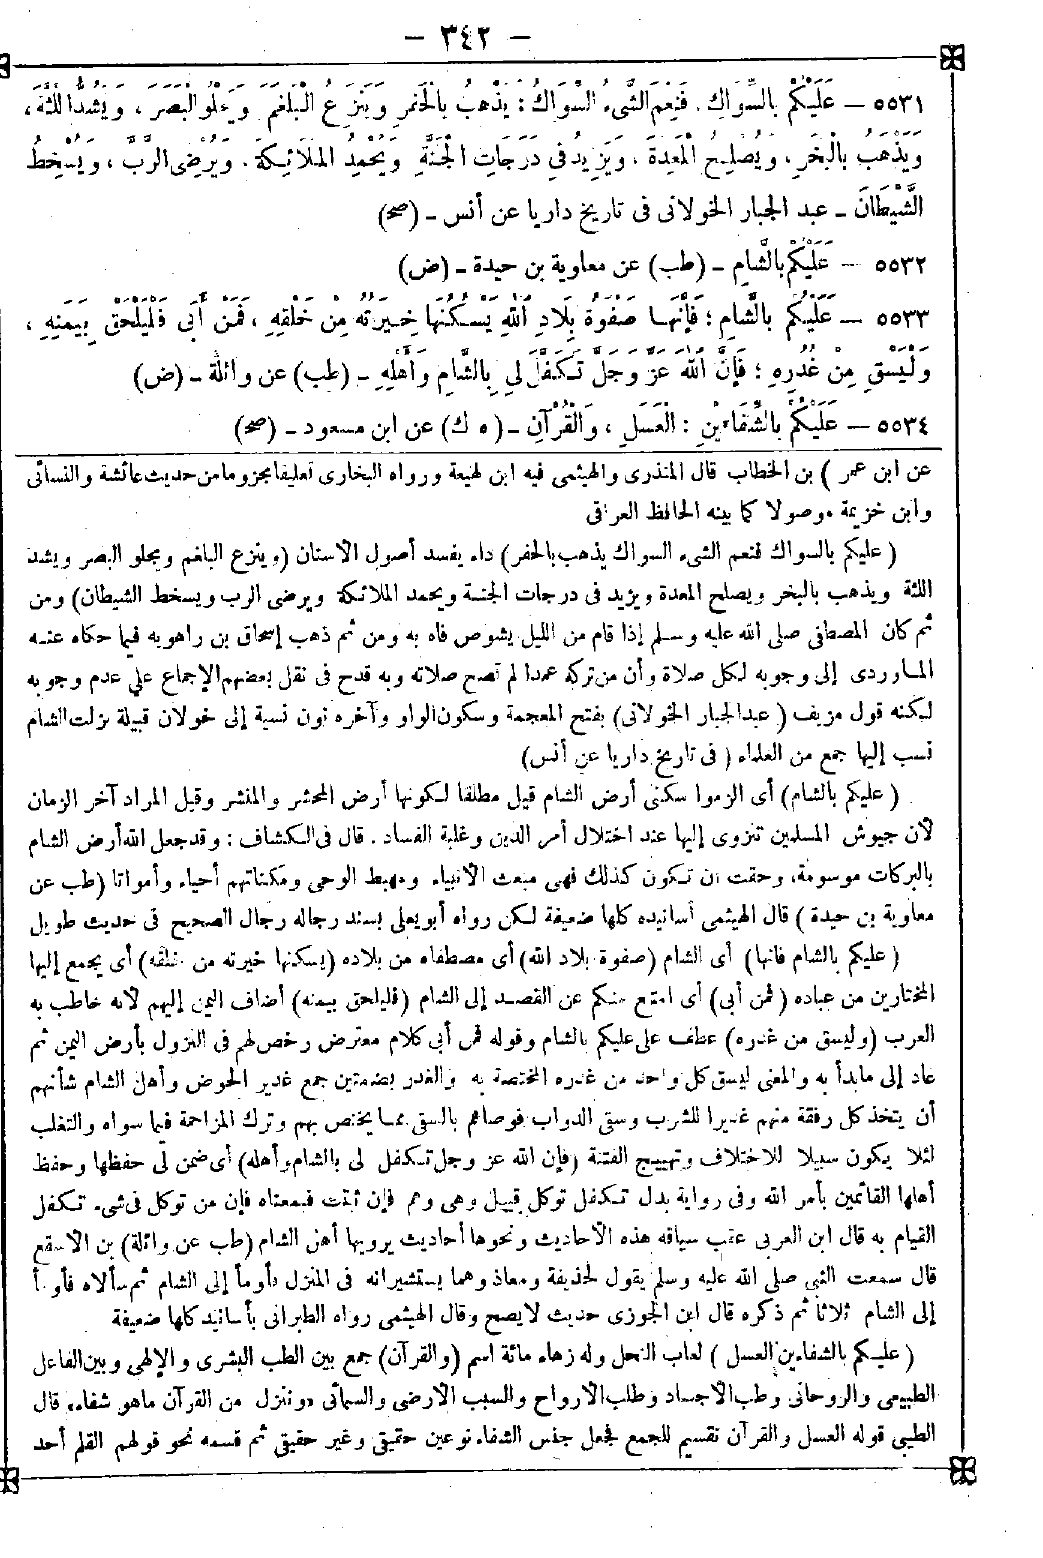 – ٣٤٢ –
٥٥٣١ – عَلَيْكُمْ بِالسِّوَاكِ. فَنِعْمَ الشَّيْءُ السِّوَاكُ: يَذْهَبُ بِالْحَفَرِ وَيَنْزِعُ الْبَلْغَمَ وَيَجْلُو الْبَصَرَ، وَيَشُدُّ اللَّثَةَ،
وَيَذْهَبُ بِالْبَخَرِ، وَيُصْلِحُ الْمَعِدَةَ، وَيَزِيدُ فِي دَرَجَاتِ الْجَنَّةِ وَيُحْمِدُ الْمَلَائِكَةَ. وَيُرْضِي الرَّبَّ، وَيُسْخِطُ
الشَّيْطَانَ – عبد الجبار الخولانى فى تاريخ داريا عن أنس – (صح)
٥٥٣٢ – عَلَيْكُمْ بِالشَّامِ – (طب) عن معاوية بن حيدة – (ض)
٥٥٣٣ – عَلَيْكُمْ بِالشَّامِ؛ فَإِنَّهَا صَفْوَةُ بِلَادِ اللهِ يَسْكُنُهَا خِيَرَتُهُ مِنْ خَلْقِهِ، فَمَنْ أَبَى فَلْيَلْحَقْ بِيَمَنِهِ،
وَلْيَسْقِ مِنْ غُدُرِهِ؛ فَإِنَّ اللهَ عَزَّ وَجَلَّ تَكَفَّلَ لِي بِالشَّامِ وَأَهْلِهِ – (طب) عن واثلة – (ض)
٥٥٣٤ – عَلَيْكُمْ بِالشِّفَاءَيْنِ: الْعَسَلِ، وَالْقُرْآنِ – (ه ك) عن ابن مسعود – (صح)
عن ابن عمر) بن الخطاب قال المنذرى والهيثمى فيه ابن لهيعة ورواه البخارى تعليقا مجزوما من حديث عائشة والنسائى
وابن خزيمة موصولا كما بينه الحافظ العراقى
(عليكم بالسواك فنعم الشىء السواك يذهب بالحفر) داء يفسد أصول الأسنان (وينزع البلغم ويجلو البصر ويشد
اللثة ويذهب بالبخر ويصلح المعدة ويزيد فى درجات الجنة ويحمد الملائكة ويرضى الرب ويسخط الشيطان) ومن
ثم كان المصطفى صلى الله عليه وسلم إذا قام من الليل يشوص فاه به ومن ثم ذهب إسحاق بن راهويه فيما حكاه عنه
الماوردى إلى وجوبه لكل صلاة وأن من تركه عمدا لم تصح صلاته وبه قدح فى نقل بعضهم الإجماع على عدم وجوبه
لكنه قول مزيف (عبد الجبار الخولانى) بفتح المعجمة وسكون الواو وآخره نون نسبة إلى خولان قبيلة نزلت الشام
نسب إليها جمع من العلماء (فى تاريخ داريا عن أنس)
(عليكم بالشام) أى الزموا سكنى أرض الشام قيل مطلقا لكونها أرض المحشر والمنشر وقيل المراد آخر الزمان
لأن جيوش المسلمين تنزوى إليها عند اختلال أمر الدين وغلبة الفساد. قال فى الكشاف: وقد جعل الله أرض الشام
بالبركات موسومة، وحقت أن تكون كذلك فهى مبعث الأنبياء ومهبط الوحى ومكفاتهم أحياء وأمواتا (طب عن
معاوية بن حيدة) قال الهيثمى أسانيده كلها ضعيفة لكن رواه أبو يعلى بسند رجاله رجال الصحيح فى حديث طويل
(عليكم بالشام فانها) أى الشام (صفوة بلاد الله) أى مصطفاه من بلاده (يسكنها خيرته من خلقه) أى يجمع إليها
المختارين من عباده (فمن أبى) أى امتنع منكم عن القصد إلى الشام (فليلحق بيمنه) أضاف اليمن إليهم لأنه خاطب به
العرب (وليسق من غدره) عطف على عليكم بالشام وقوله فمن أبى كلام معترض رخص لهم فى النزول بأرض اليمن ثم
عاد إلى ما بدأ به والمعنى ليسق كل واحد من غدره المختصة به والغدر بضمتين جمع غدير الحوض وأهل الشام شأنهم
أن يتخذ كل رفقة منهم غديرا للشرب وسقى الدواب فوصاهم بالسقى مما يختص بهم وترك المزاحمة فيما سواه والتغلب
لئلا يكون سبيلا للاختلاف وتهييج الفتنة (فإن الله عز وجل تكفل لى بالشام وأهله) أى ضمن لى حفظها وحفظ
أهلها القائمين بأمر الله وفى رواية بدل تكفل توكل قيل وهى وهم فإن ثبتت فمعناه فإن من توكل فى شىء تكفل
القيام به قال ابن العربى عقب سياقه هذه الأحاديث ونحوها أحاديث يرويها أهل الشام (طب عن واثلة) بن الاسقع
قال سمعت النبى صلى الله عليه وسلم يقول لحذيفة ومعاذ وهما يستشيرانه فى المنزل فأومأ إلى الشام ثم سألاه فأومأ
إلى الشام ثلاثا ثم ذكره قال ابن الجوزى حديث لا يصح وقال الهيثمى رواه الطبرانى بأسانيد كلها ضعيفة
(عليكم بالشفاءين العسل) لعاب النحل وله زهاء مائة اسم (والقرآن) جمع بين الطب البشرى والإلهى وبين الفاعل
الطبيعى والروحانى وطب الأجساد وطلب الأرواح والسبب الأرضى والسمائى «وننزل من القرآن ما هو شفاء» قال
الطيبى قوله العسل والقرآن تقسيم للجمع فجعل جنس الشفاء نوعين حقيقى وغير حقيقى ثم قسمه نحو قولهم القلم أحد